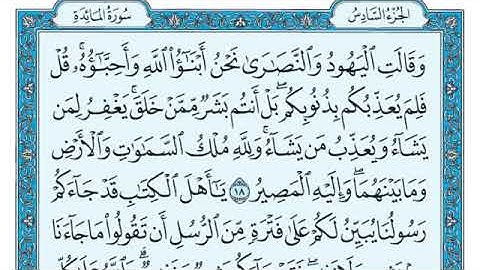 الجزء السادس
سورة المائدة
وَقَالَتِ ٱلْيَهُودُ وَٱلنَّصَٰرَىٰ نَحْنُ أَبْنَٰٓؤُا۟ ٱللَّهِ وَأَحِبَّٰٓؤُهُۥۚ قُلْ
فَلِمَ يُعَذِّبُكُم بِذُنُوبِكُمۖ بَلْ أَنتُم بَشَرٌ مِّمَّنْ خَلَقَۚ يَغْفِرُ لِمَن
يَشَآءُ وَيُعَذِّبُ مَن يَشَآءُۚ وَلِلَّهِ مُلْكُ ٱلسَّمَٰوَٰتِ وَٱلْأَرْضِ
وَمَا بَيْنَهُمَاۖ وَإِلَيْهِ ٱلْمَصِيرُ ١٨ يَٰٓأَهْلَ ٱلْكِتَٰبِ قَدْ جَآءَكُمْ
رَسُولُنَا يُبَيِّنُ لَكُمْ عَلَىٰ فَتْرَةٍ مِّنَ ٱلرُّسُلِ أَن تَقُولُوا۟ مَا جَآءَنَا